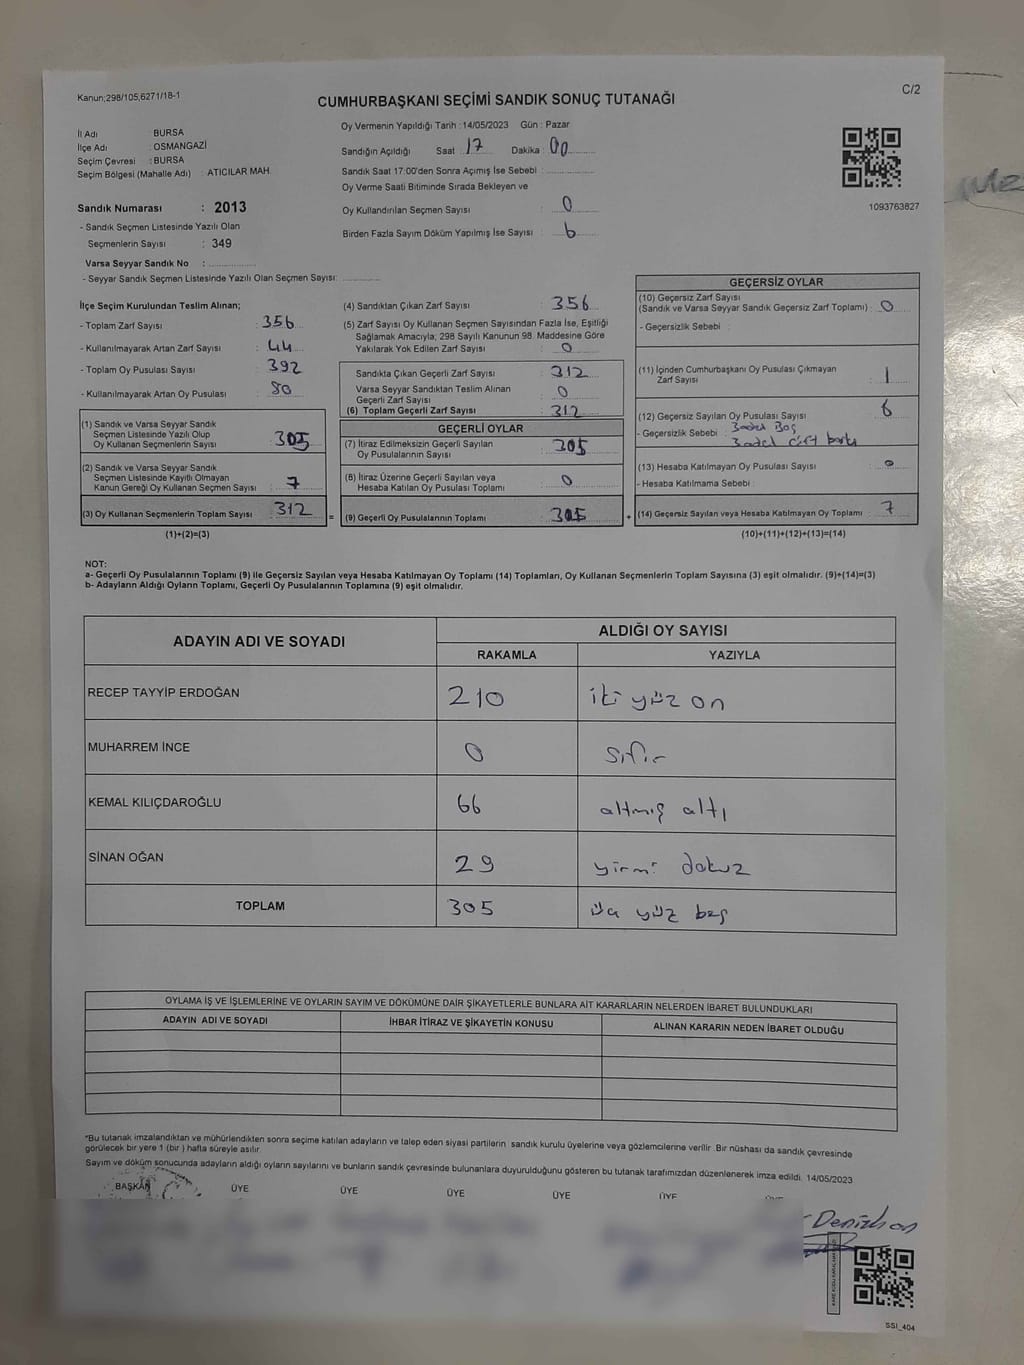 Kanun;298/105,6271/18-1
C/2
CUMHURBAŞKANI SEÇİMİ SANDIK SONUÇ TUTANAĞI
İl Adı : BURSA
İlçe Adı : OSMANGAZİ
Seçim Çevresi : BURSA
Seçim Bölgesi (Mahalle Adı) : ATICILAR MAH.
Sandık Numarası : 2013
- Sandık Seçmen Listesinde Yazılı Olan
Seçmenlerin Sayısı : 349
Varsa Seyyar Sandık No :
- Seyyar Sandık Seçmen Listesinde Yazılı Olan Seçmen Sayısı:
Oy Vermenin Yapıldığı Tarih : 14/05/2023 Gün : Pazar
Sandığın Açıldığı Saat : 17 Dakika : 00
Sandık Saat 17:00'den Sonra Açımış İse Sebebi :
Oy Verme Saati Bitiminde Sırada Bekleyen ve
Oy Kullandırılan Seçmen Sayısı : 0
Birden Fazla Sayım Döküm Yapılmış İse Sayısı : 6
1093763827
İlçe Seçim Kurulundan Teslim Alınan;
- Toplam Zarf Sayısı : 356
- Kullanılmayarak Artan Zarf Sayısı : 44
- Toplam Oy Pusulası Sayısı : 392
- Kullanılmayarak Artan Oy Pusulası : 80
(1) Sandık ve Varsa Seyyar Sandık
Seçmen Listesinde Yazılı Olup
Oy Kullanan Seçmenlerin Sayısı : 305
(2) Sandık ve Varsa Seyyar Sandık
Seçmen Listesinde Kayıtlı Olmayan
Kanun Gereği Oy Kullanan Seçmen Sayısı : 7
(3) Oy Kullanan Seçmenlerin Toplam Sayısı : 312
(1)+(2)=(3)
(4) Sandıktan Çıkan Zarf Sayısı : 356
(5) Zarf Sayısı Oy Kullanan Seçmen Sayısından Fazla İse, Eşitliği
Sağlamak Amacıyla; 298 Sayılı Kanunun 98. Maddesine Göre
Yakılarak Yok Edilen Zarf Sayısı : 0
Sandıkta Çıkan Geçerli Zarf Sayısı : 312
Varsa Seyyar Sandıktan Teslim Alınan
Geçerli Zarf Sayısı : 0
(6) Toplam Geçerli Zarf Sayısı : 312
GEÇERLİ OYLAR
(7) İtiraz Edilmeksizin Geçerli Sayılan
Oy Pusulalarının Sayısı : 305
(8) İtiraz Üzerine Geçerli Sayılan veya
Hesaba Katılan Oy Pusulası Toplamı : 0
= (9) Geçerli Oy Pusulalarının Toplamı : 305 +
GEÇERSİZ OYLAR
(10) Geçersiz Zarf Sayısı
(Sandık ve Varsa Seyyar Sandık Geçersiz Zarf Toplamı) : 0
- Geçersizlik Sebebi :
(11) İçinden Cumhurbaşkanı Oy Pusulası Çıkmayan
Zarf Sayısı : 1
(12) Geçersiz Sayılan Oy Pusulası Sayısı : 6
- Geçersizlik Sebebi : 3 adet Boş
3 adet çift
(13) Hesaba Katılmayan Oy Pusulası Sayısı : 0
- Hesaba Katılmama Sebebi :
(14) Geçersiz Sayılan veya Hesaba Katılmayan Oy Toplamı : 7
(10)+(11)+(12)+(13)=(14)
NOT:
a- Geçerli Oy Pusulalarının Toplamı (9) ile Geçersiz Sayılan veya Hesaba Katılmayan Oy Toplamı (14) Toplamları, Oy Kullanan Seçmenlerin Toplam Sayısına (3) eşit olmalıdır. (9)+(14)=(3)
b- Adayların Aldığı Oyların Toplamı, Geçerli Oy Pusulalarının Toplamına (9) eşit olmalıdır.
ADAYIN ADI VE SOYADI ALDIĞI OY SAYISI
RAKAMLA YAZIYLA
RECEP TAYYİP ERDOĞAN 210 iki yüz on
MUHARREM İNCE 0 sıfır
KEMAL KILIÇDAROĞLU 66 altmış altı
SİNAN OĞAN 29 yirmi dokuz
TOPLAM 305 üç yüz beş
OYLAMA İŞ VE İŞLEMLERİNE VE OYLARIN SAYIM VE DÖKÜMÜNE DAİR ŞİKAYETLERLE BUNLARA AİT KARARLARIN NELERDEN İBARET BULUNDUKLARI
ADAYIN ADI VE SOYADI İHBAR İTİRAZ VE ŞİKAYETİN KONUSU ALINAN KARARIN NEDEN İBARET OLDUĞU
*Bu tutanak imzalandıktan ve mühürlendikten sonra seçime katılan adayların ve talep eden siyasi partilerin sandık kurulu üyelerine veya gözlemcilerine verilir. Bir nüshası da sandık çevresinde
görülecek bir yere 1 (bir) hafta süreyle asılır.
Sayım ve döküm sonucunda adayların aldığı oyların sayılarını ve bunların sandık çevresinde bulunanlara duyurulduğunu gösteren bu tutanak tarafımızdan düzenlenerek imza edildi. 14/05/2023
BAŞKAN ÜYE ÜYE ÜYE ÜYE ÜYE
Denizhan
SSI_404